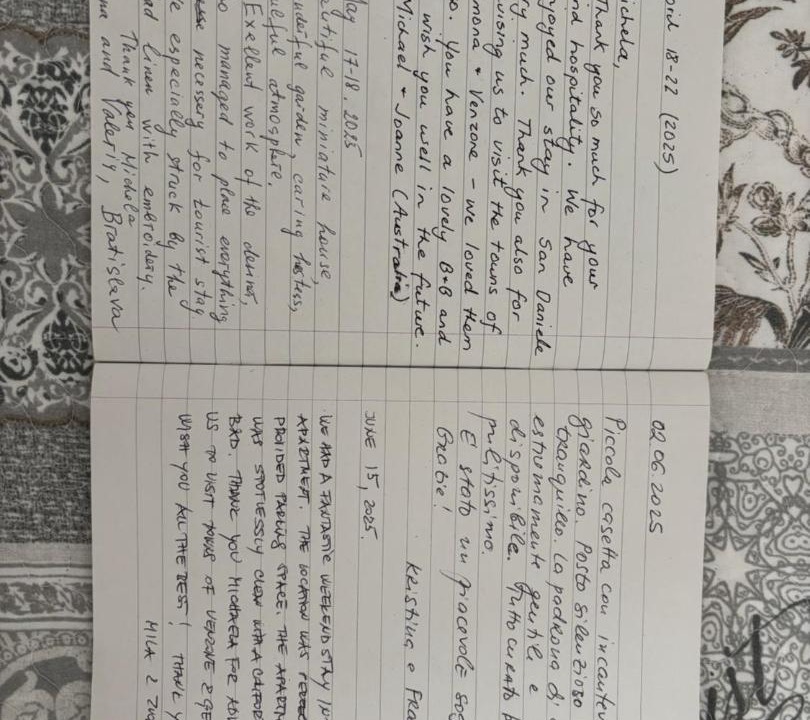 18-22 (2025)
Thank you so much for your
and hospitality. We have
enjoyed our stay in San Daniele
very much. Thank you also for
us to visit the towns of
& Venzone - we loved them
You have a lovely B+B and
wish you well in the future.
Michael & Joanne (Australia)
17-18. 2025
miniature house
garden, caring hostess,
atmosphere.
Exellent work of the
managed to place everything
necessary for tourist stay
especially struck by the
linen with embroidery.
Thank you Michela
and Valeriy, Bratislava
02.06.2025
Piccola casetta con
giardino. Posto silenzioso
tranquillo. La padrona di
estremamente gentile e
disponibile. Tutto curato
pulitissimo.
È stato un piacevole
Grazie!
Kristina e
JUNE 15, 2025.
WE HAD A FANTASTIC WEEKEND STAY IN
APARTMENT. THE LOCATION WAS
PROVIDED PARKING SPACE. THE
WAS SPOTLESSLY CLEAN WITH A
BED. THANK YOU MICHAELA FOR
US TO VISIT TOWNS OF VENZONE
WISH YOU ALL THE BEST! THANK
MILA